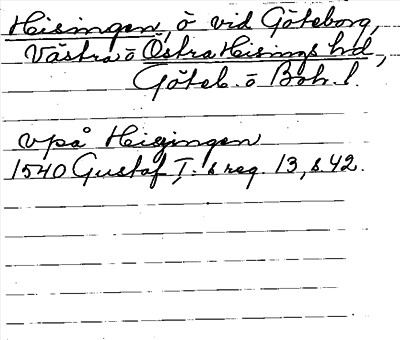 Hisingen, ö vid Göteborg,
Västra o Östra Hisings hd,
Göteb. o Boh. l.
vpå Hisingen
1540 Gustaf I:s reg. 13, s. 42.